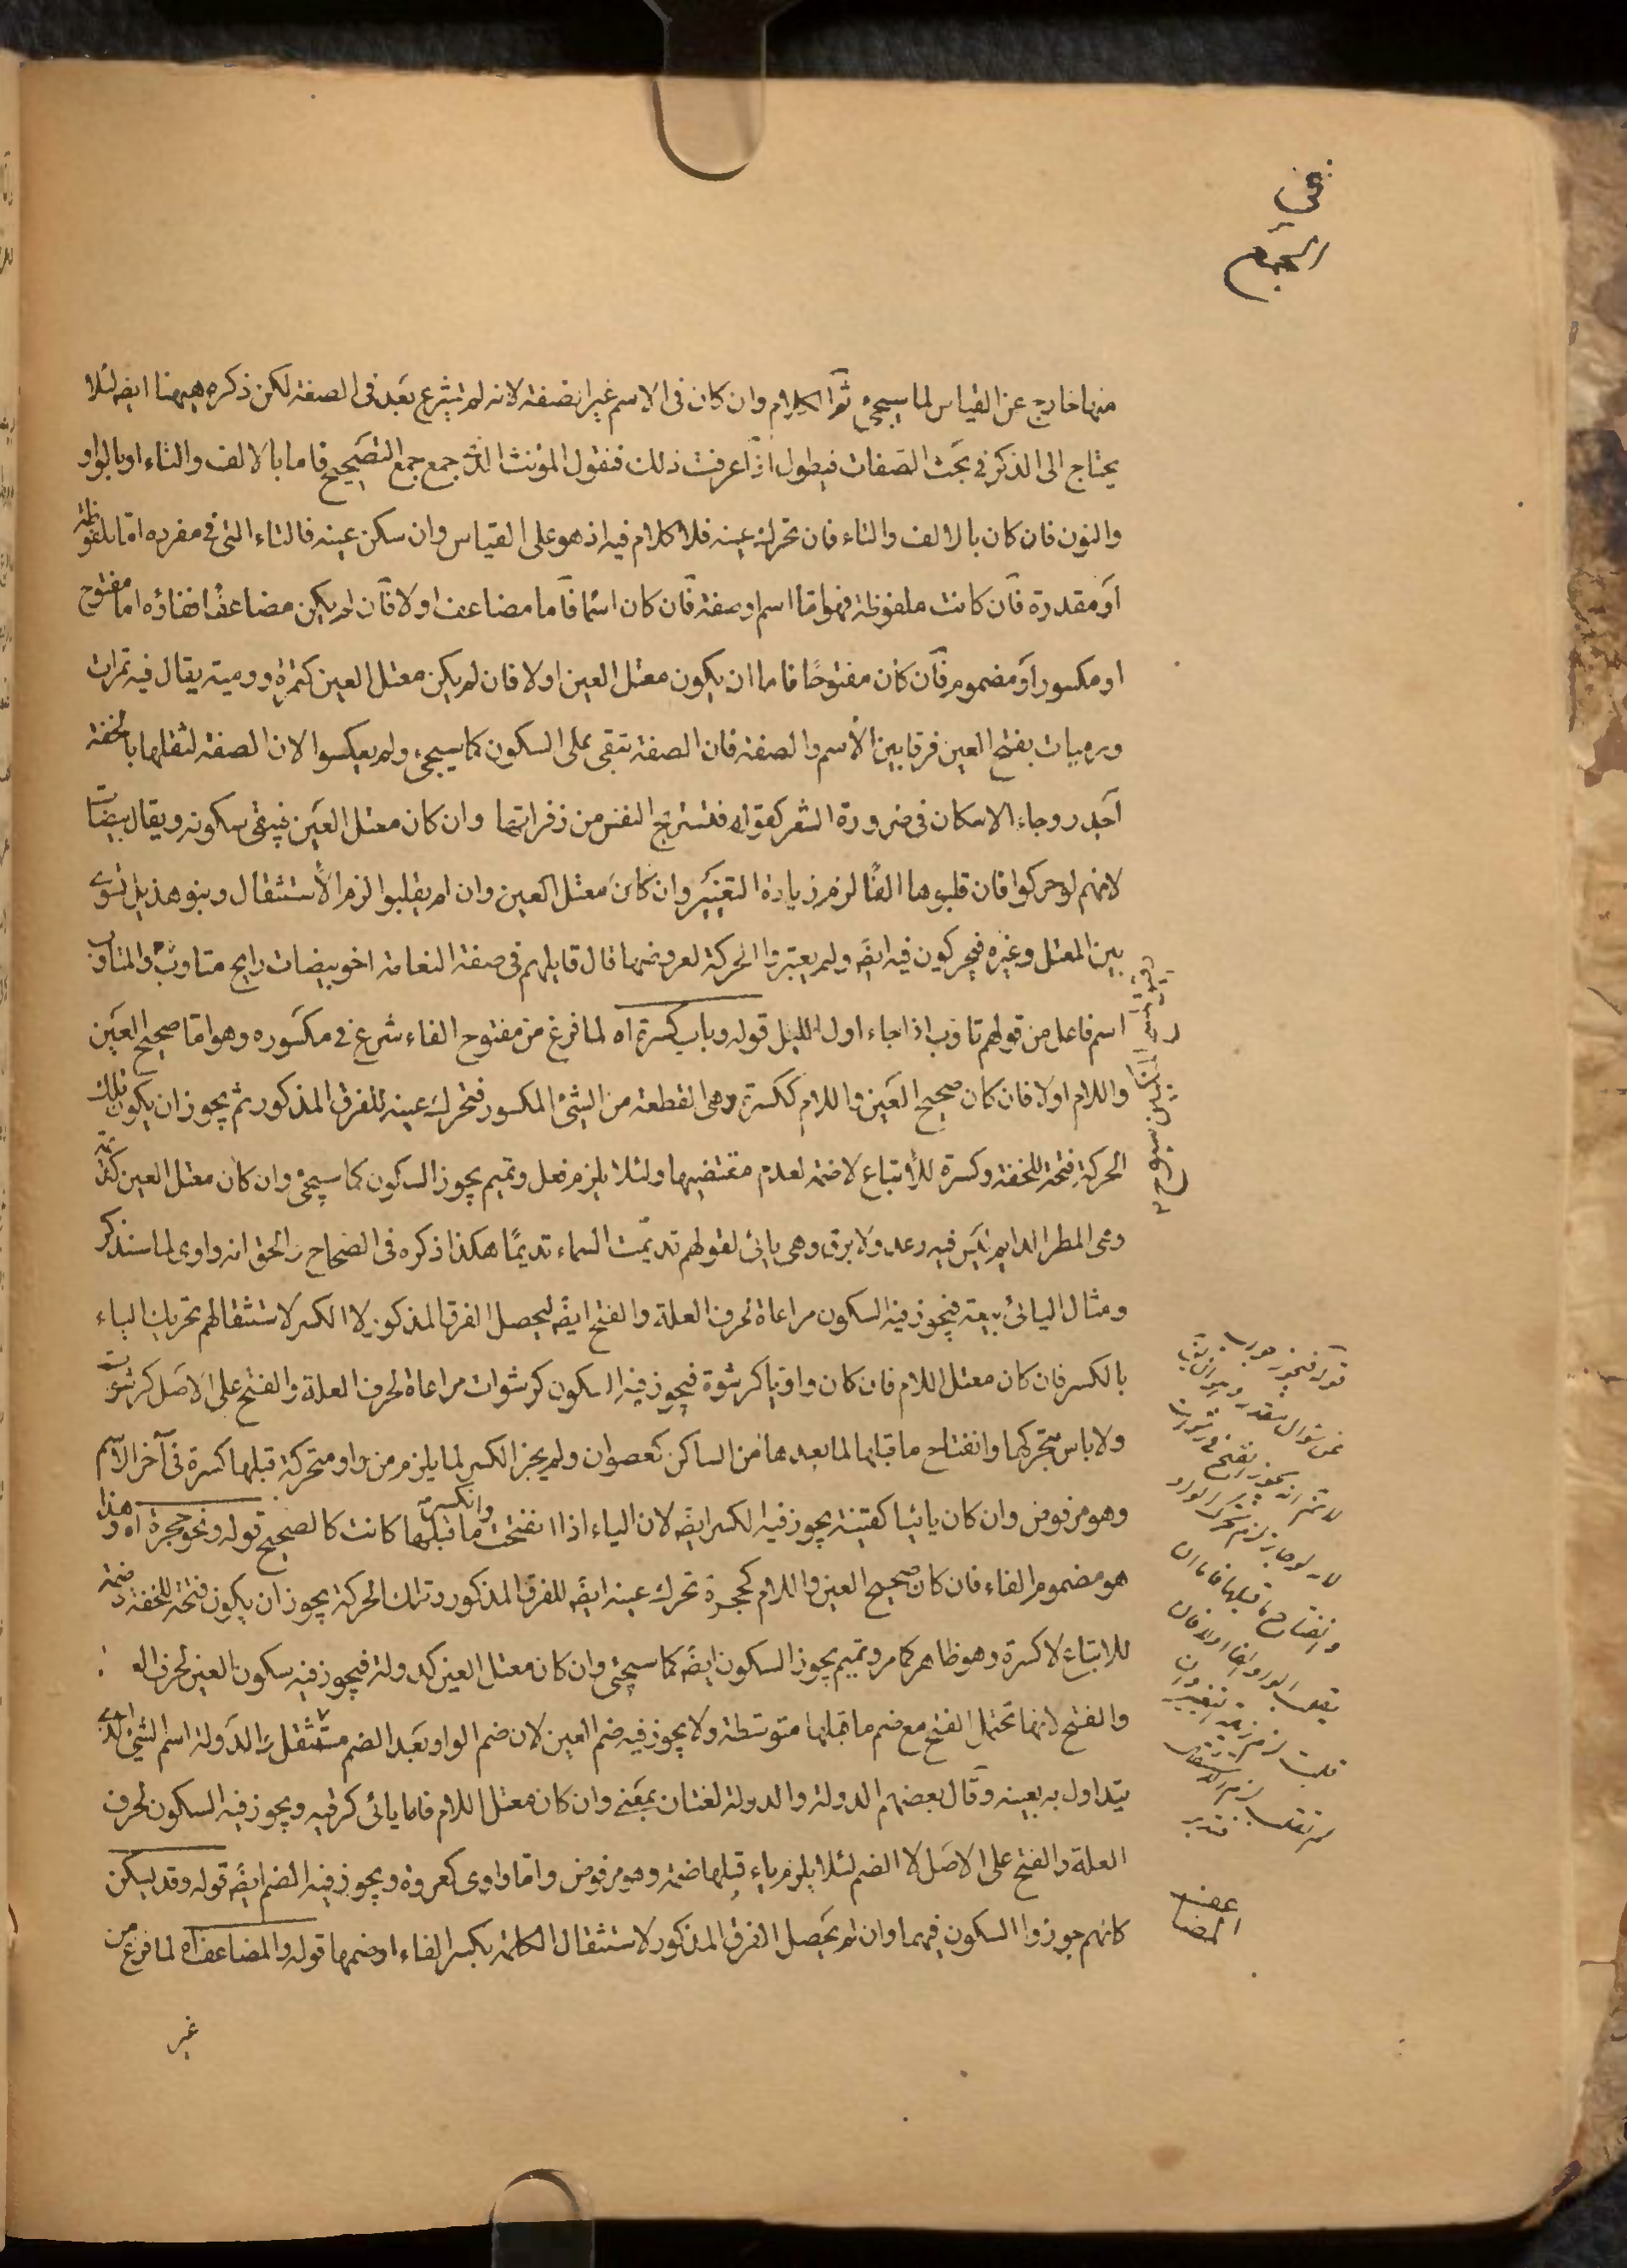 في
الجمع
منها خارج عن القياس لما سيجئ ثم الكلام وان كان فى الاسم غير انضفة لانه لم يشرع بعد فى الصفة لكن ذكره ههنا ايضا لئلا
يحتاج الى الذكر في بحث الصفات فيطول اذا عرفت ذلك فنقول المؤنث الذى جمع جمع التصحيح فاما بالالف والتاء او بالواو
والنون فان كان بالالف والتاء فان تحرك عينه فلا كلام فيه اذ هو على القياس وان سكن عينه فالتاء التى في مفرده اما ملفوظة
او مقدرة فان كانت ملفوظة فهو اما اسم او صفة فان كان اسما فاما مضاعف اولا فان لم يكن مضاعفا ففاؤه اما مفتوح
او مكسور او مضموم فان كان مفتوحا فاما ان يكون معتل العين اولا فان لم يكن معتل العين كتمرة ورمية يقال فيه تمرات
ورميات بفتح العين فرقا بين الاسم والصفة فان الصفة تبقى على السكون كما سيجئ ولم يعكسوا لان الصفة لثقلها بالخفة
اجدر وجاء الاسكان فى ضرورة الشعر كقوله فتستريح النفس من زفراتها وان كان معتل العين فيبقى سكونه ويقال بيضات
لانهم لو حركوا فان قلبوها الفا لزم زيادة التغيير وان كان معتل العين وان لم يقلبوا لزم الاستثقال وبنو هذيل تسوى
بين المعتل وغيره فيحركون فيه ايضا ولم يعتبروا الحركة لعروضها قال قايلهم فى صفة النعامة اخو بيضات رايح متاوب والمتاوب
اسم فاعل من قولهم تاوب اذا جاء اول الليل قوله وباب كسرة اه لما فرغ من مفتوح الفاء شرع في مكسوره وهو اما صحيح العين
واللام اولا فان كان صحيح العين واللام ككسرة وهى القطعة من الشئ المكسور فتحرك عينه للفرق المذكور ثم يجوز ان يكون تلك
الحركة فتحة للخفة وكسرة للاتباع لا ضمة لعدم مقتضيها ولئلا يلزم فعل وتميم يجوز السكون كما سيجئ وان كان معتل العين كديمة
وهى المطر الدايم ليس فيه رعد ولا برق وهى يائى لقولهم تديمت السماء تديما هكذا ذكره فى الصحاح والحق انه واوى لما سنذكر
ومثال اليائى بيعة فيجوز فيه السكون مراعاة لحرف العلة والفتح ايضا ليحصل الفرق المذكور لا الكسر لاستثقالهم تحريك الياء
بالكسر فان كان معتل اللام فان كان واويا كرشوة فيجوز فيه السكون كرشوات مراعاة لحرف العلة والفتح على الاصل كرشوات
ولا باس بتحركها وانفتاح ما قبلها لما بعدها من الساكن كعصوان ولم يجز الكسر لما يلزم من واو متحركة قبلها كسرة فى آخر الاسم
وهو مرفوض وان كان يائيا كقنية يجوز فيه الكسر ايضا لان الياء اذا انفتحت وانكسر ما قبلها كانت كالصحيح قوله ونحو حجرة اه وهذا
هو مضموم الفاء فان كان صحيح العين واللام كحجرة تحرك عينه ايضا للفرق المذكور وتلك الحركة يجوز ان يكون فتحة للخفة وضمة
للاتباع لا كسرة وهو ظاهر كما مر وتميم يجوز السكون ايضا كما سيجئ وان كان معتل العين كدولة فيجوز فيه سكون العين لحرف الع
والفتح لانها تحتمل الفتح مع ضم ما قبلها متوسطة ولا يجوز فيه ضم العين لان ضم الواو بعد الضم مستثقل والدولة اسم الشئ الذى
يتداول به بعينه وقال بعضهم الدولة والدولة لغتان بمعنى وان كان معتل اللام فاما يائى كرقية ويجوز فيه السكون لحرف
العلة والفتح على الاصل لا الضم لئلا يلزم ياء قبلها ضمة وهو مرفوض واما واوى كعروة ويجوز فيه الضم ايضا قوله وقد يسكن
كانهم جوزوا السكون فيهما وان لم يحصل الفرق المذكور لاستثقال الكلمة بكسر الفاء او ضمها قوله والمضاعف اه لما فرغ من
غير